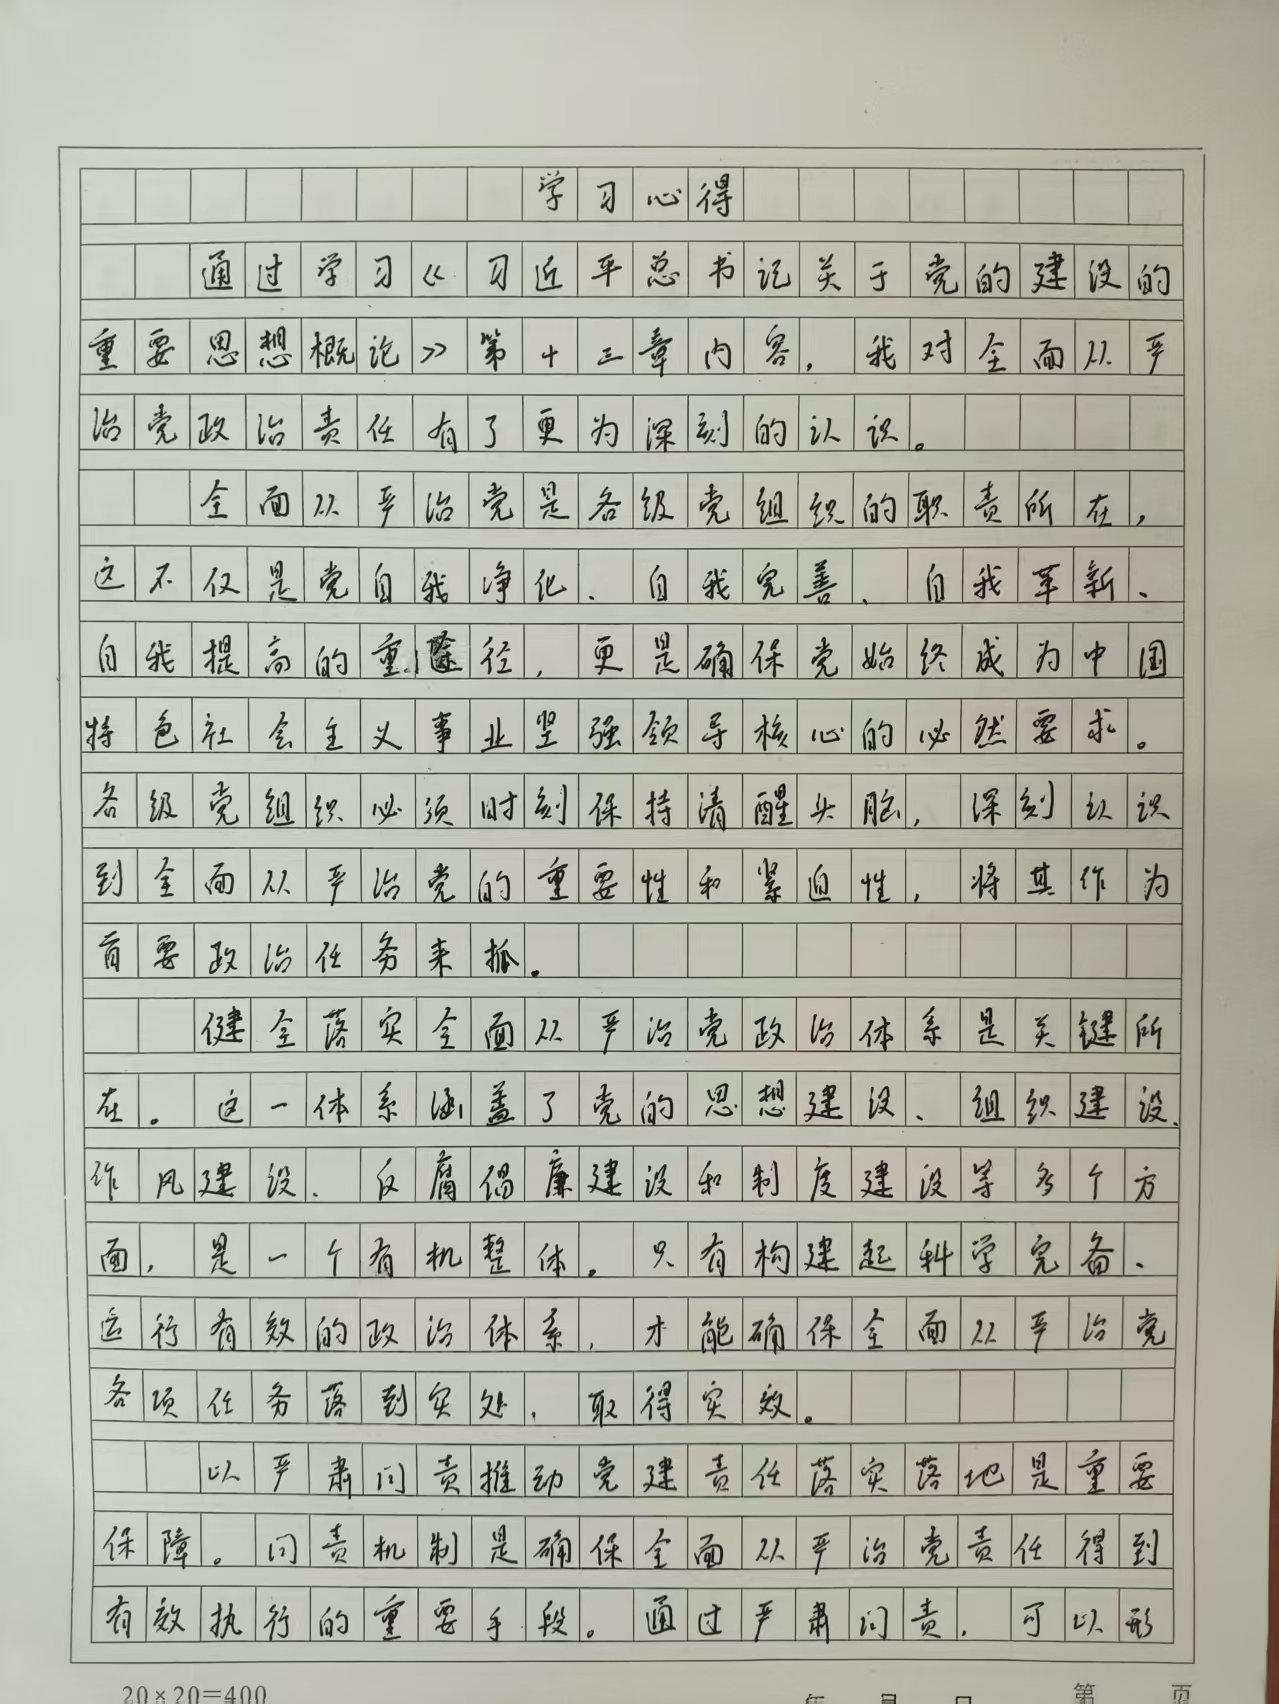 学习心得
通过学习《习近平总书记关于党的建设的
重要思想概论》第十三章内容，我对全面从严
治党政治责任有了更为深刻的认识。
全面从严治党是各级党组织的职责所在，
这不仅是党自我净化、自我完善、自我革新、
自我提高的重途径，更是确保党始终成为中国
特色社会主义事业坚强领导核心的必然要求。
各级党组织必须时刻保持清醒头脑，深刻认识
到全面从严治党的重要性和紧迫性，将其作为
首要政治任务来抓。
健全落实全面从严治党政治体系是关键所
在。这一体系涵盖了党的思想建设、组织建设、
作风建设、反腐倡廉建设和制度建设等多个方
面，是一个有机整体。只有构建起科学完备、
运行有效的政治体系，才能确保全面从严治党
各项任务落到实处，取得实效。
以严肃问责推动党建责任落实落地是重要
保障。问责机制是确保全面从严治党责任得到
有效执行的重要手段。通过严肃问责，可以形
20×20=400
年 月 日 第 页